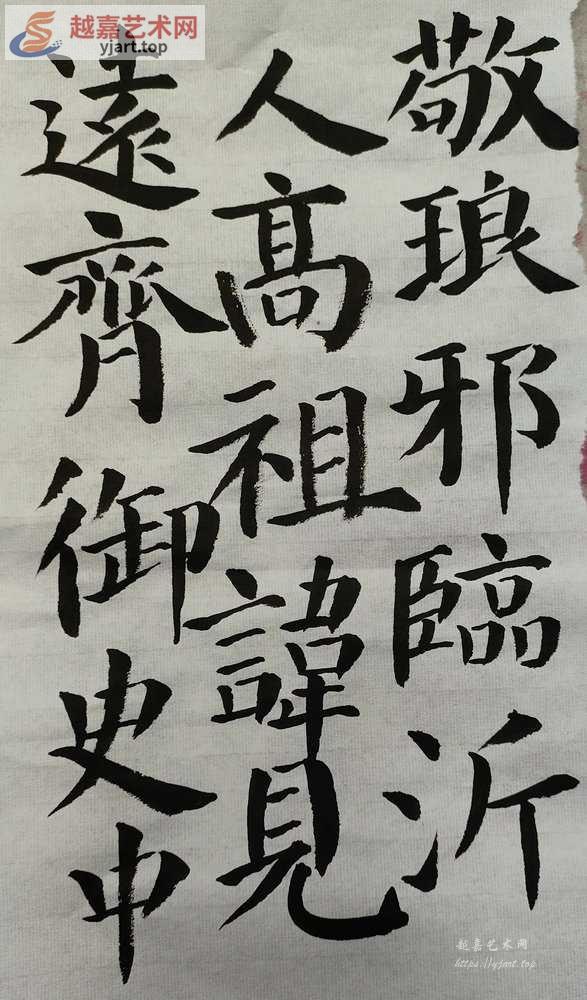 越嘉艺术网
yjart.top
敬琅邪臨沂
人高祖諱見
遠齊御史中
越嘉艺术网
https://yjart.top